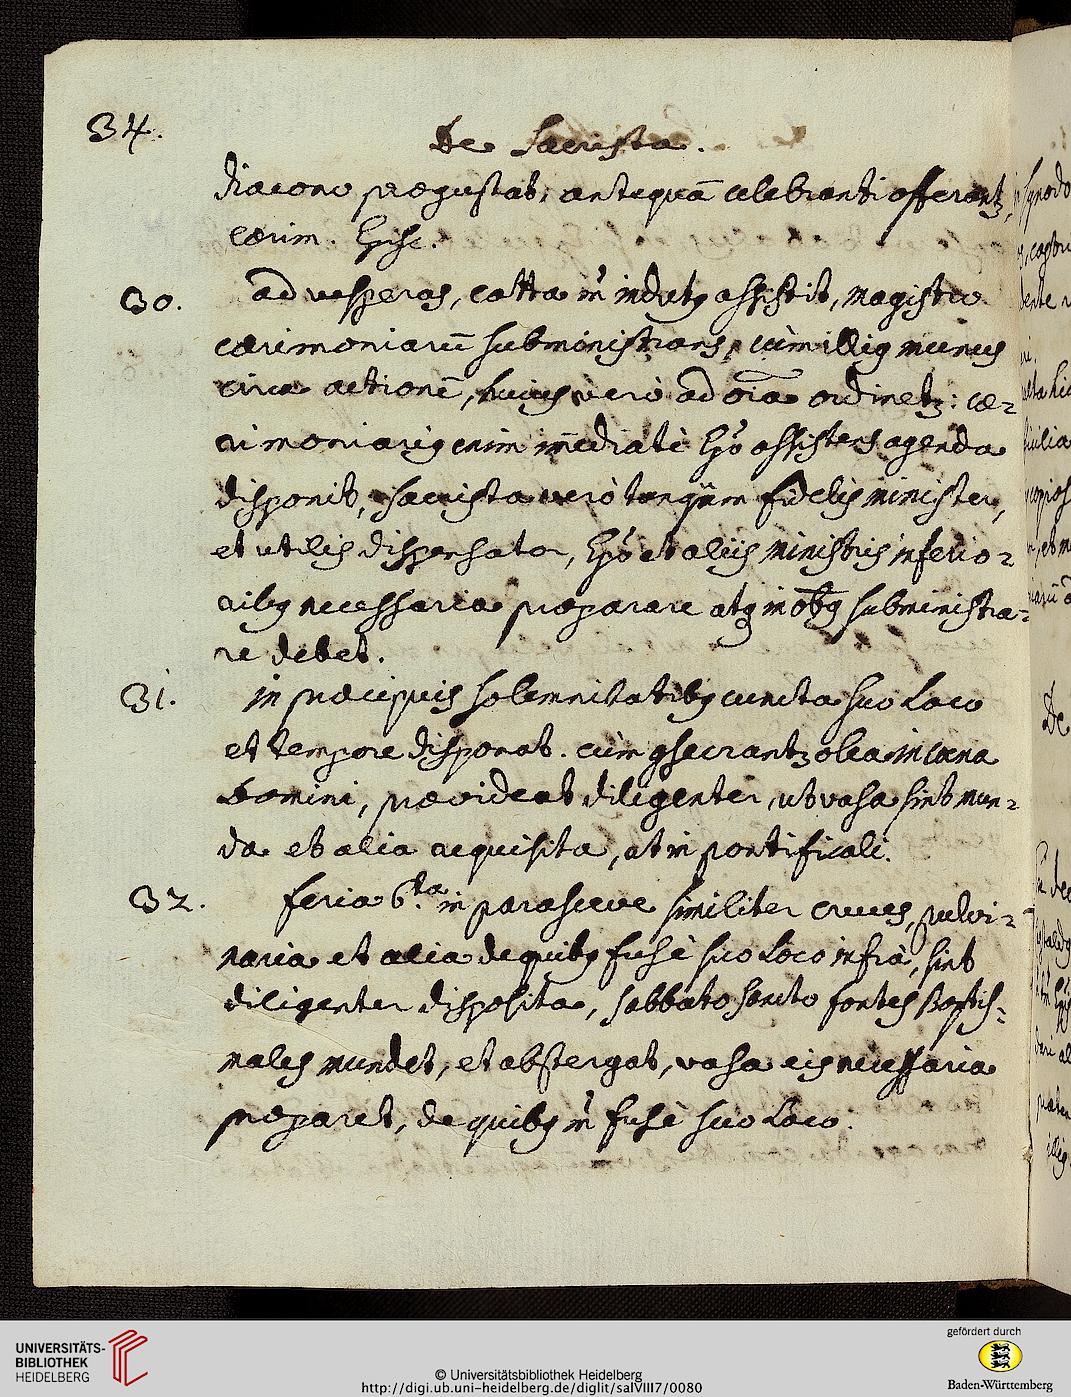 34.
De Sacrista.
diacono prægustat, antequā celebranti offerantꝫ,
cærim. Episc.
30. ad vesperas, cotta indutꝰ assistit, magistro
cærimoniarū subministrans, cùm illiꝰ munus
circa actionē, huius verò ad oīa ordinetꝫ: cæ-
rimoniariꝰ enim īmediatè Ep̄o assistens agenda
disponit, sacrista verò tanquam fidelis minister,
et utilis dispensator, Ep̄o et aliis ministris inferio-
ribꝰ necessaria præparare atqꝫ in oībꝰ subministra-
re debet.
31. in præcipuis solemnitatibꝰ cuncta suo Loco
et tempore disponat. cùm ꝯsecrantꝫ olea in cæna
Domini, prævideat diligenter, ut vasa sint mun-
da et alia requisita, ut in pontificali.
32. feria 6.ta in parasceve similiter cruces, pulvi-
naria et alia de quibꝰ fusè suo Loco infrà, sint
diligenter disposita, sabbato sancto fontes Baptis-
males mundet, et abstergat, vasa eis necessaria
præparet, de quibꝰ fusè suo Loco.
De
UNIVERSITÄTS-
BIBLIOTHEK
HEIDELBERG
© Universitätsbibliothek Heidelberg
http://digi.ub.uni-heidelberg.de/diglit/salVIII7/0080
gefördert durch
Baden-Württemberg